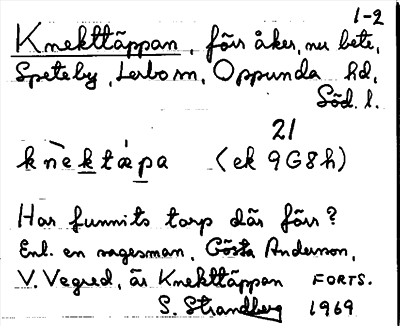 1-2
Knekttäppan, förr åker, nu bete,
Speteby, Lerbo sn, Oppunda hd,
Söd. l.
21
knèktápa (ek 9G8h)
Har funnits torp där förr?
Enl. en sagesman, Gösta Anderson,
V. Vegred, är Knekttäppan FORTS.
S. Strandberg 1969